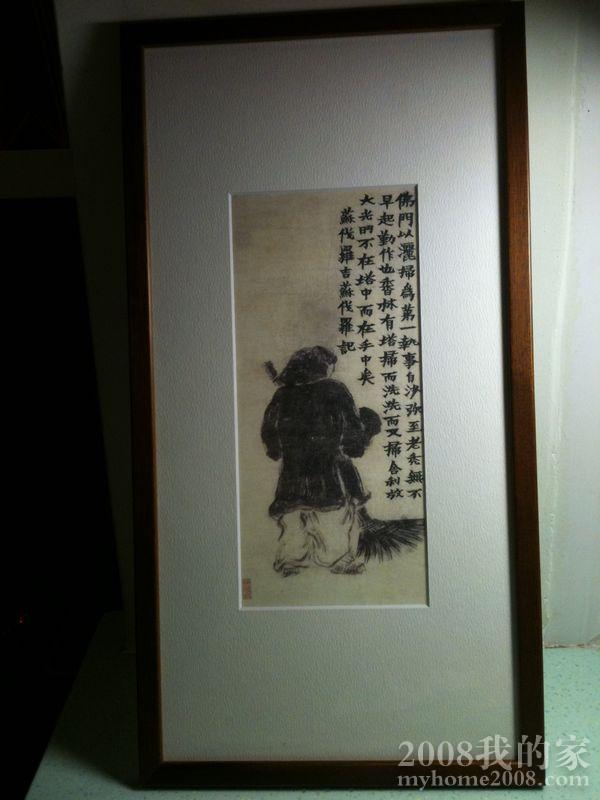 佛門以灑掃為第一執事自沙弥至老禿無不
早起勤作也香林有塔掃而洗洗而又掃舍利放
大光明不在塔中而在手中矣
蘇伐羅吉蘇伐羅記
2008我的家
myhome2008.com